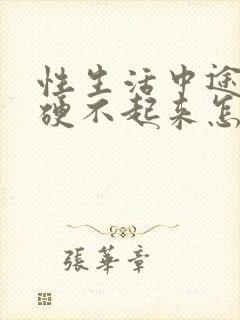 性生活中途
硬不起来怎
張華章